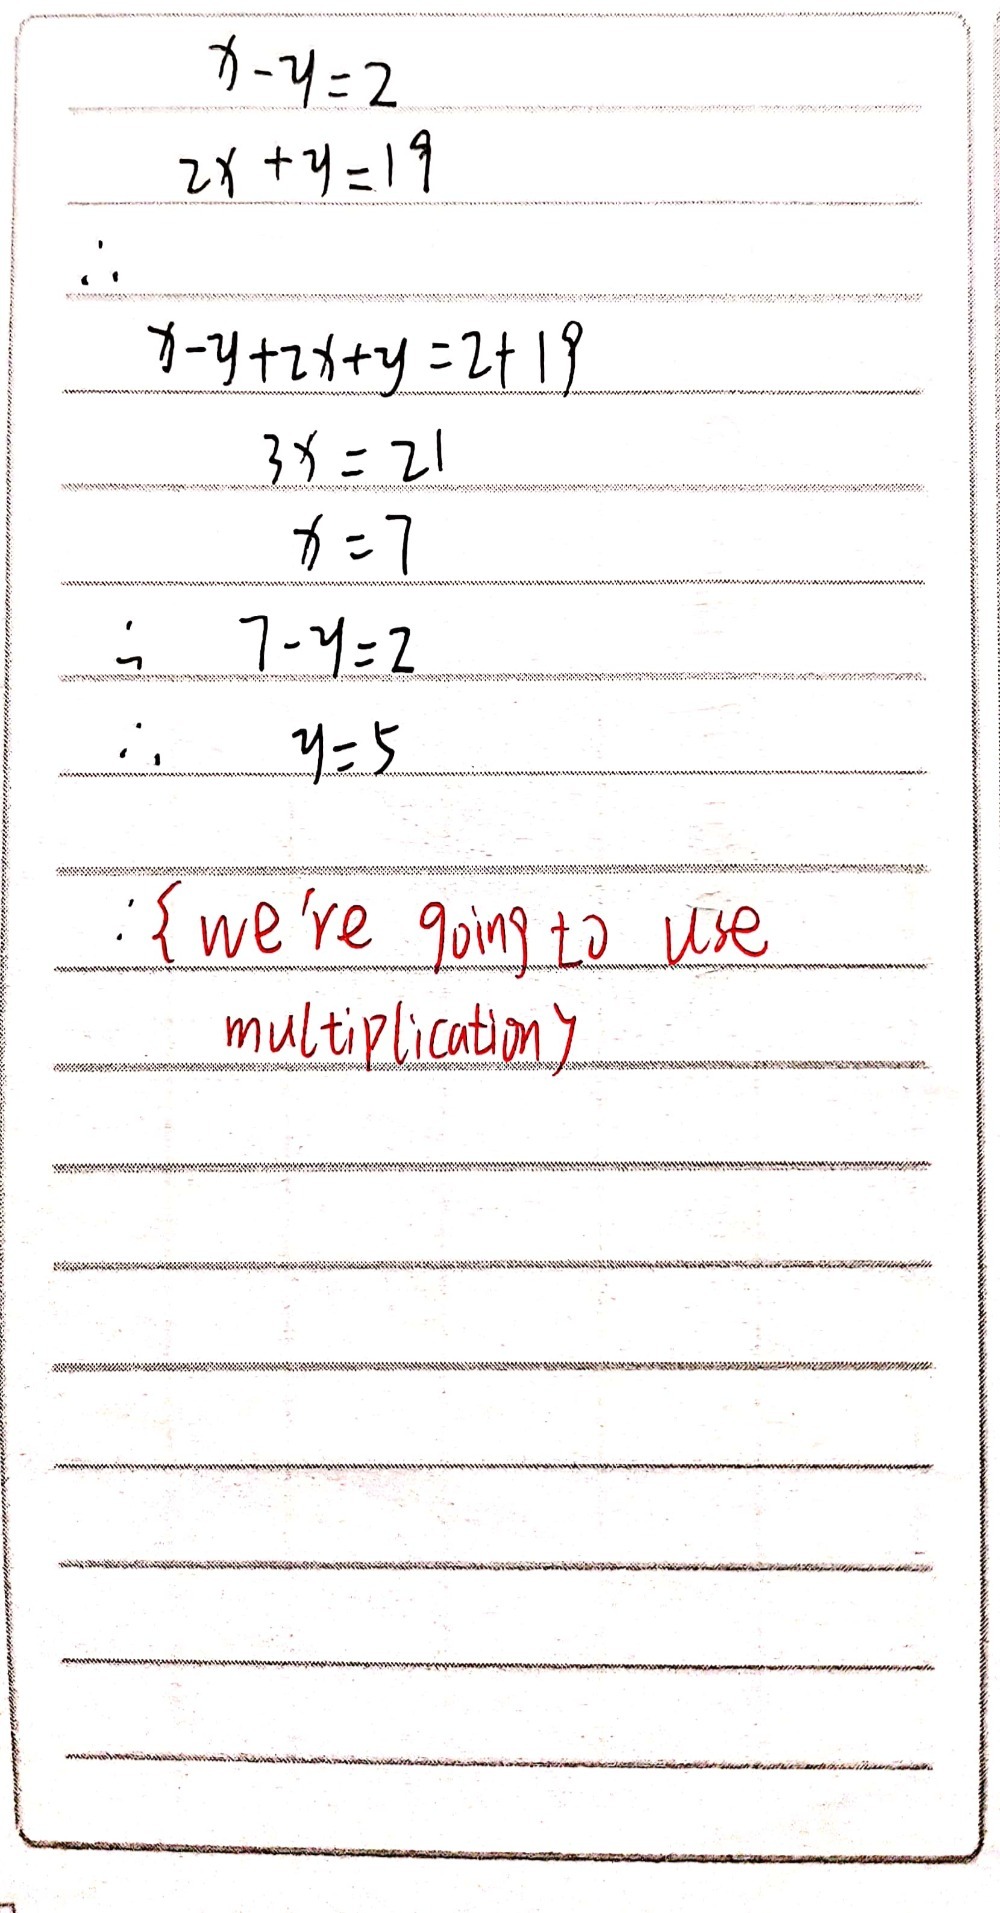 x-y=2
2x+y=19
∴
x-y+2x+y=2+19
3x=21
x=7
∴ 7-y=2
∴ y=5
:{we're going to use
multiplication}